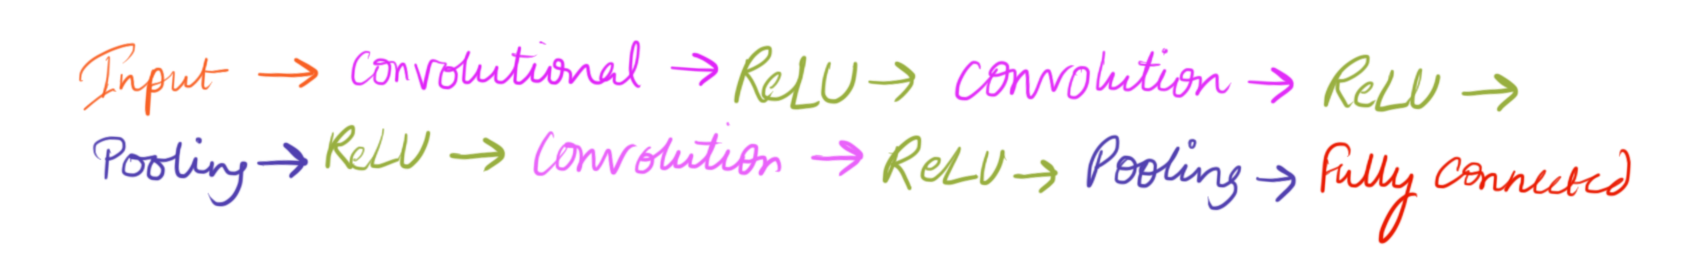 Input → Convolutional → ReLU → Convolution → ReLU →
Pooling → ReLU → Convolution → ReLU → Pooling → Fully Connected